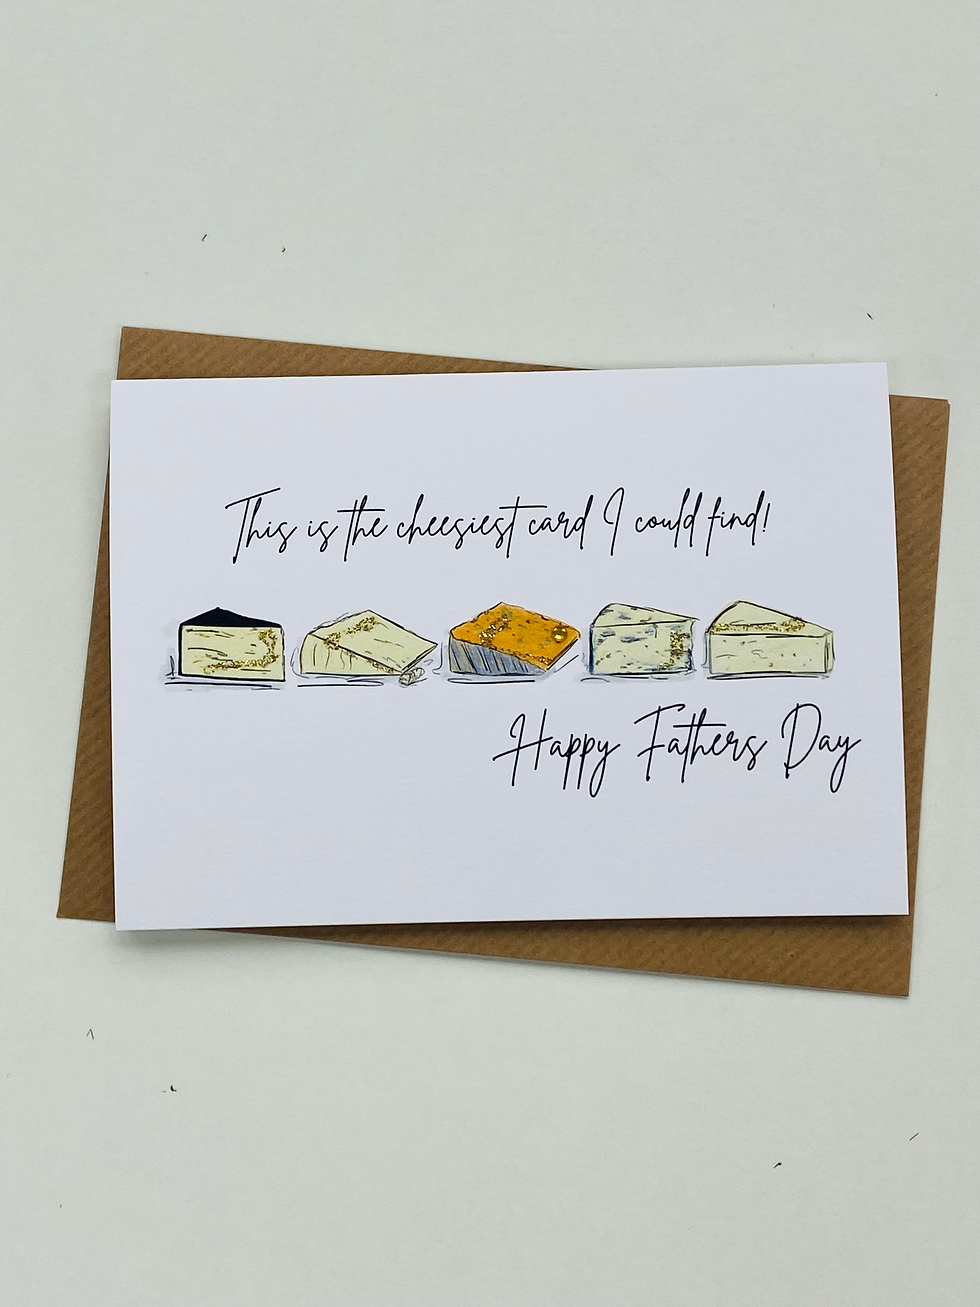 This is the cheesiest card I could find!
Happy Fathers Day